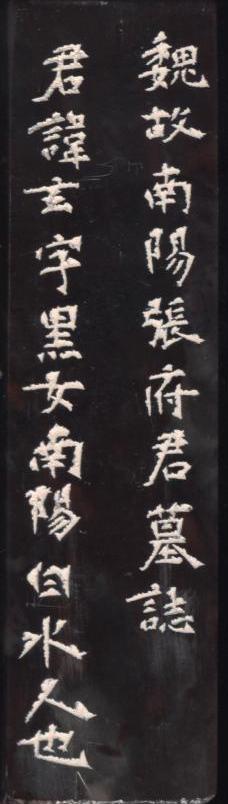 魏故南陽張府君墓誌
君諱玄字黑女南陽白水人也